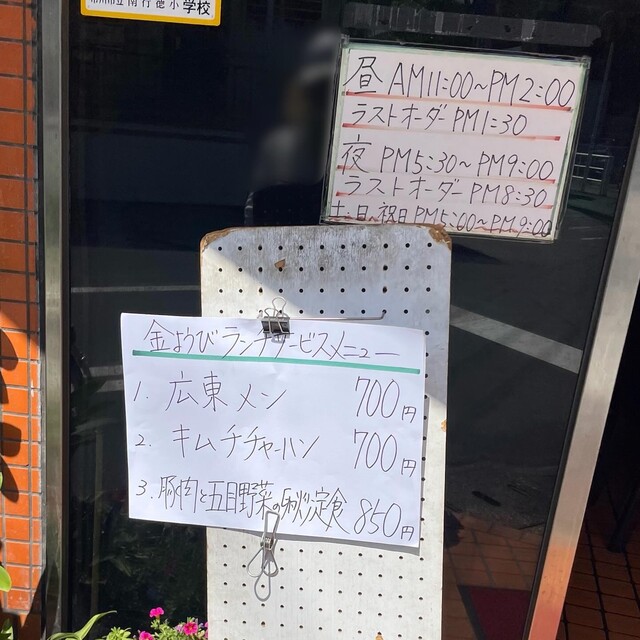 市川市立南行徳小学校
昼 AM11:00〜PM2:00
ラストオーダー PM1:30
夜 PM5:30〜PM9:00
ラストオーダー PM8:30
土・日・祝日 PM5:00〜PM9:00
金ようびランチサービスメニュー
1. 広東メン 700円
2. キムチチャーハン 700円
3. 豚肉と五目野菜の炒め定食 850円